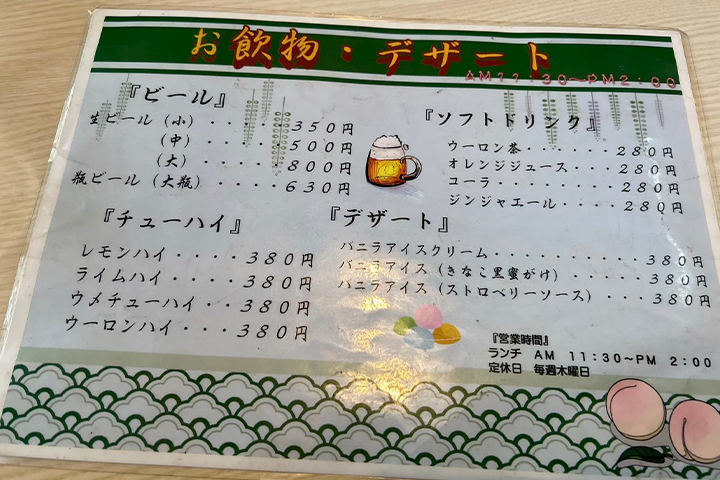 お飲物・デザート
AM11:30〜PM2:00
『ビール』
生ビール（小）・・・・350円
（中）・・・・・500円
（大）・・・・・800円
瓶ビール（大瓶）・・・・・630円
『チューハイ』
レモンハイ・・・・380円
ライムハイ・・・・380円
ウメチューハイ・・・380円
ウーロンハイ・・・380円
『ソフトドリンク』
ウーロン茶・・・・・・・280円
オレンジジュース・・・・280円
コーラ・・・・・・・・・280円
ジンジャエール・・・・・280円
『デザート』
バニラアイスクリーム・・・・・・・・・・・380円
バニラアイス（きなこ黒蜜がけ）・・・・・・380円
バニラアイス（ストロベリーソース）・・・・380円
『営業時間』
ランチ AM 11:30〜PM 2:00
定休日 毎週木曜日